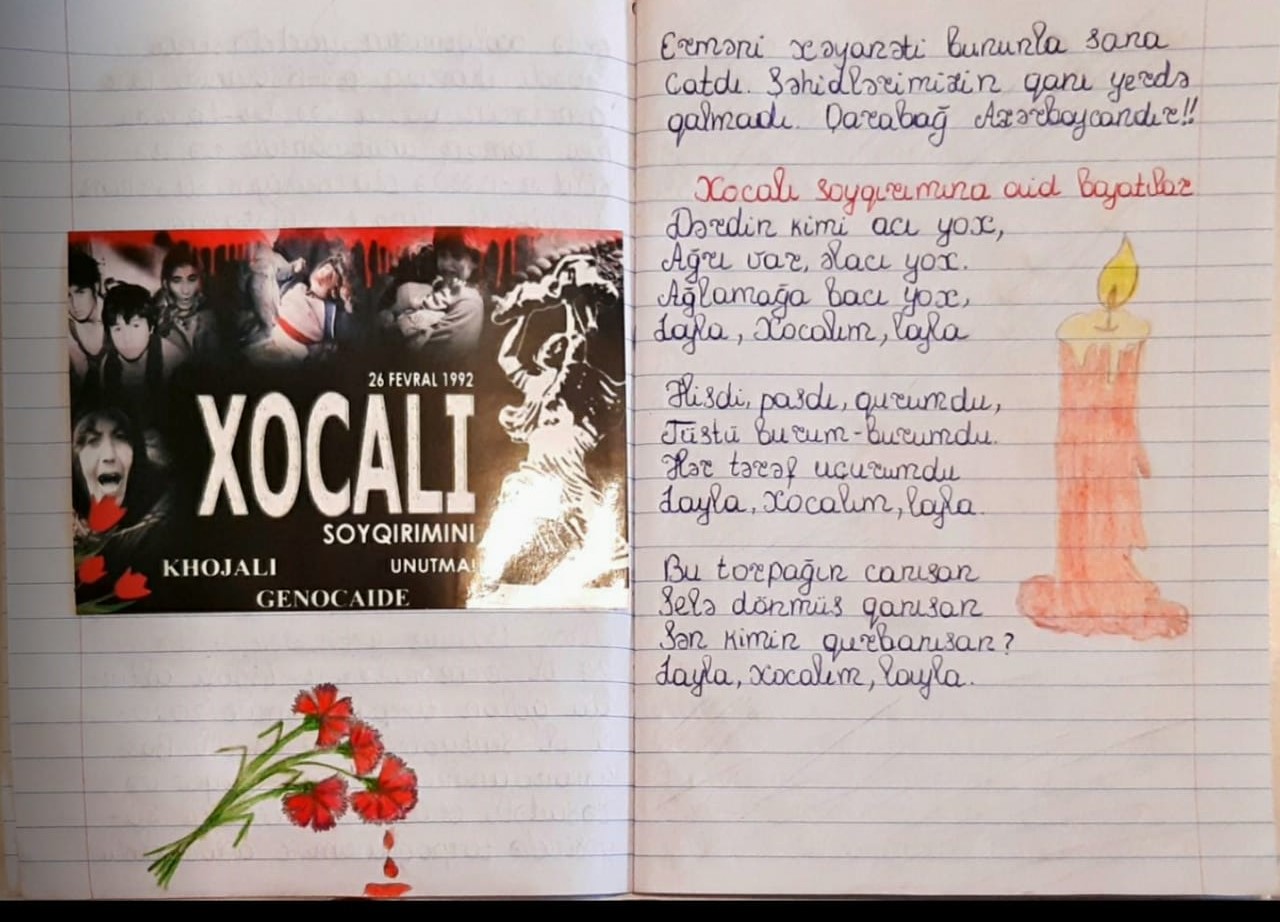 26 FEVRAL 1992
XOCALI
SOYQIRIMINI
UNUTMA!
KHOJALI
GENOCAIDE
Erməni xəyanəti bununla sana
catdı. Şəhidlərimizin qanı yerdə
qalmadı. Qarabağ Azərbaycandır!!
Xocalı soyqırımına aid bayatılar
Dərdin kimi acı yox,
Ağrı var, əlacı yox.
Ağlamağa bacı yox,
Layla, Xocalım, layla
Hisdi, pasdı, qurumdu,
Tüstü burum-burumdu.
Hər tərəf uçurumdu
Layla, Xocalım, layla.
Bu torpağın canısan
Selə dönmüş qanısan
Sən kimin qurbanısan?
Layla, xocalım, layla.